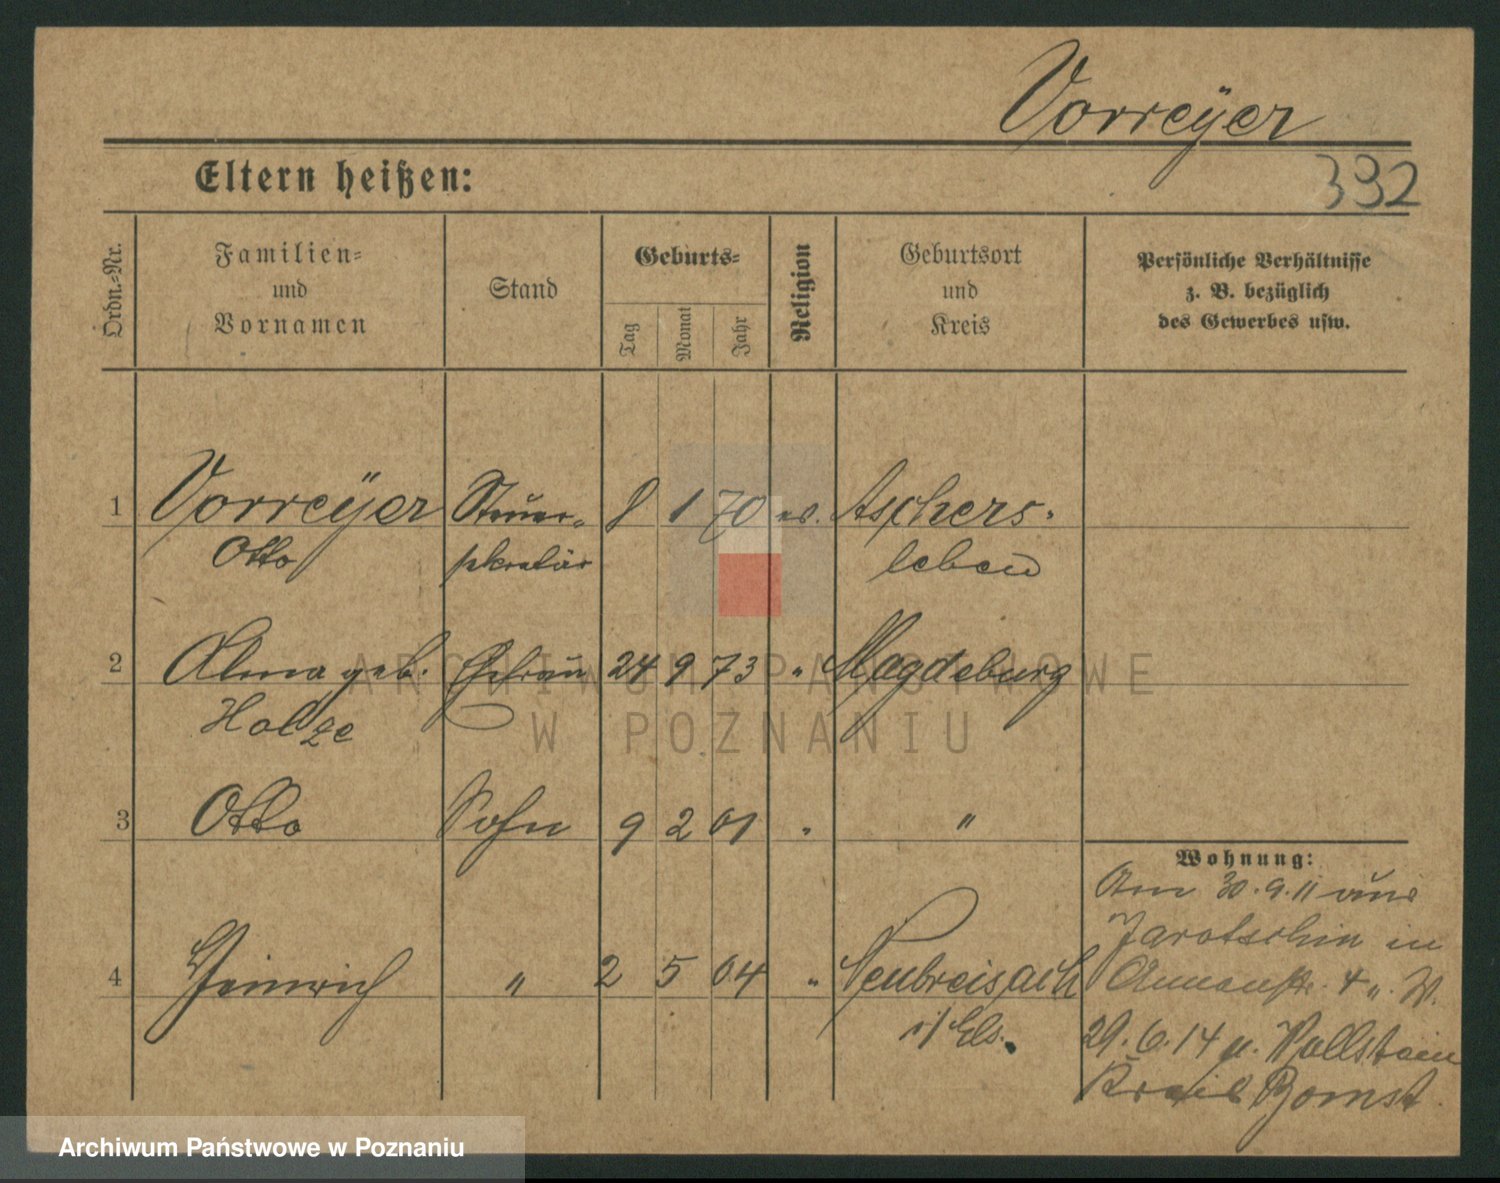 Vorreÿer
392
Eltern heißen:
Ordn.-Nr.
Familien-
und
Vornamen
Stand
Geburts-
Tag
Monat
Jahr
Religion
Geburtsort
und
Kreis
Persönliche Verhältnisse
z. B. bezüglich
des Gewerbes usw.
1 Vorreÿer Steuer- 8 1 70 ev. Aschers-
Otto sekretär leben
2 Alma geb. Ehefrau 24 9 73 " Magdeburg
Holze
3 Otto Sohn 9 2 01 " "
Wohnung:
Am 30.9.11 aus
Jarotschin in
4 Heinrich " 2 5 04 " Neubreisach
4 II. W.
i/ Els.
29.6.14 n. Wollstein
Kreis Bomst.
ARCHIWUM PAŃSTWOWE
W POZNANIU
Archiwum Państwowe w Poznaniu